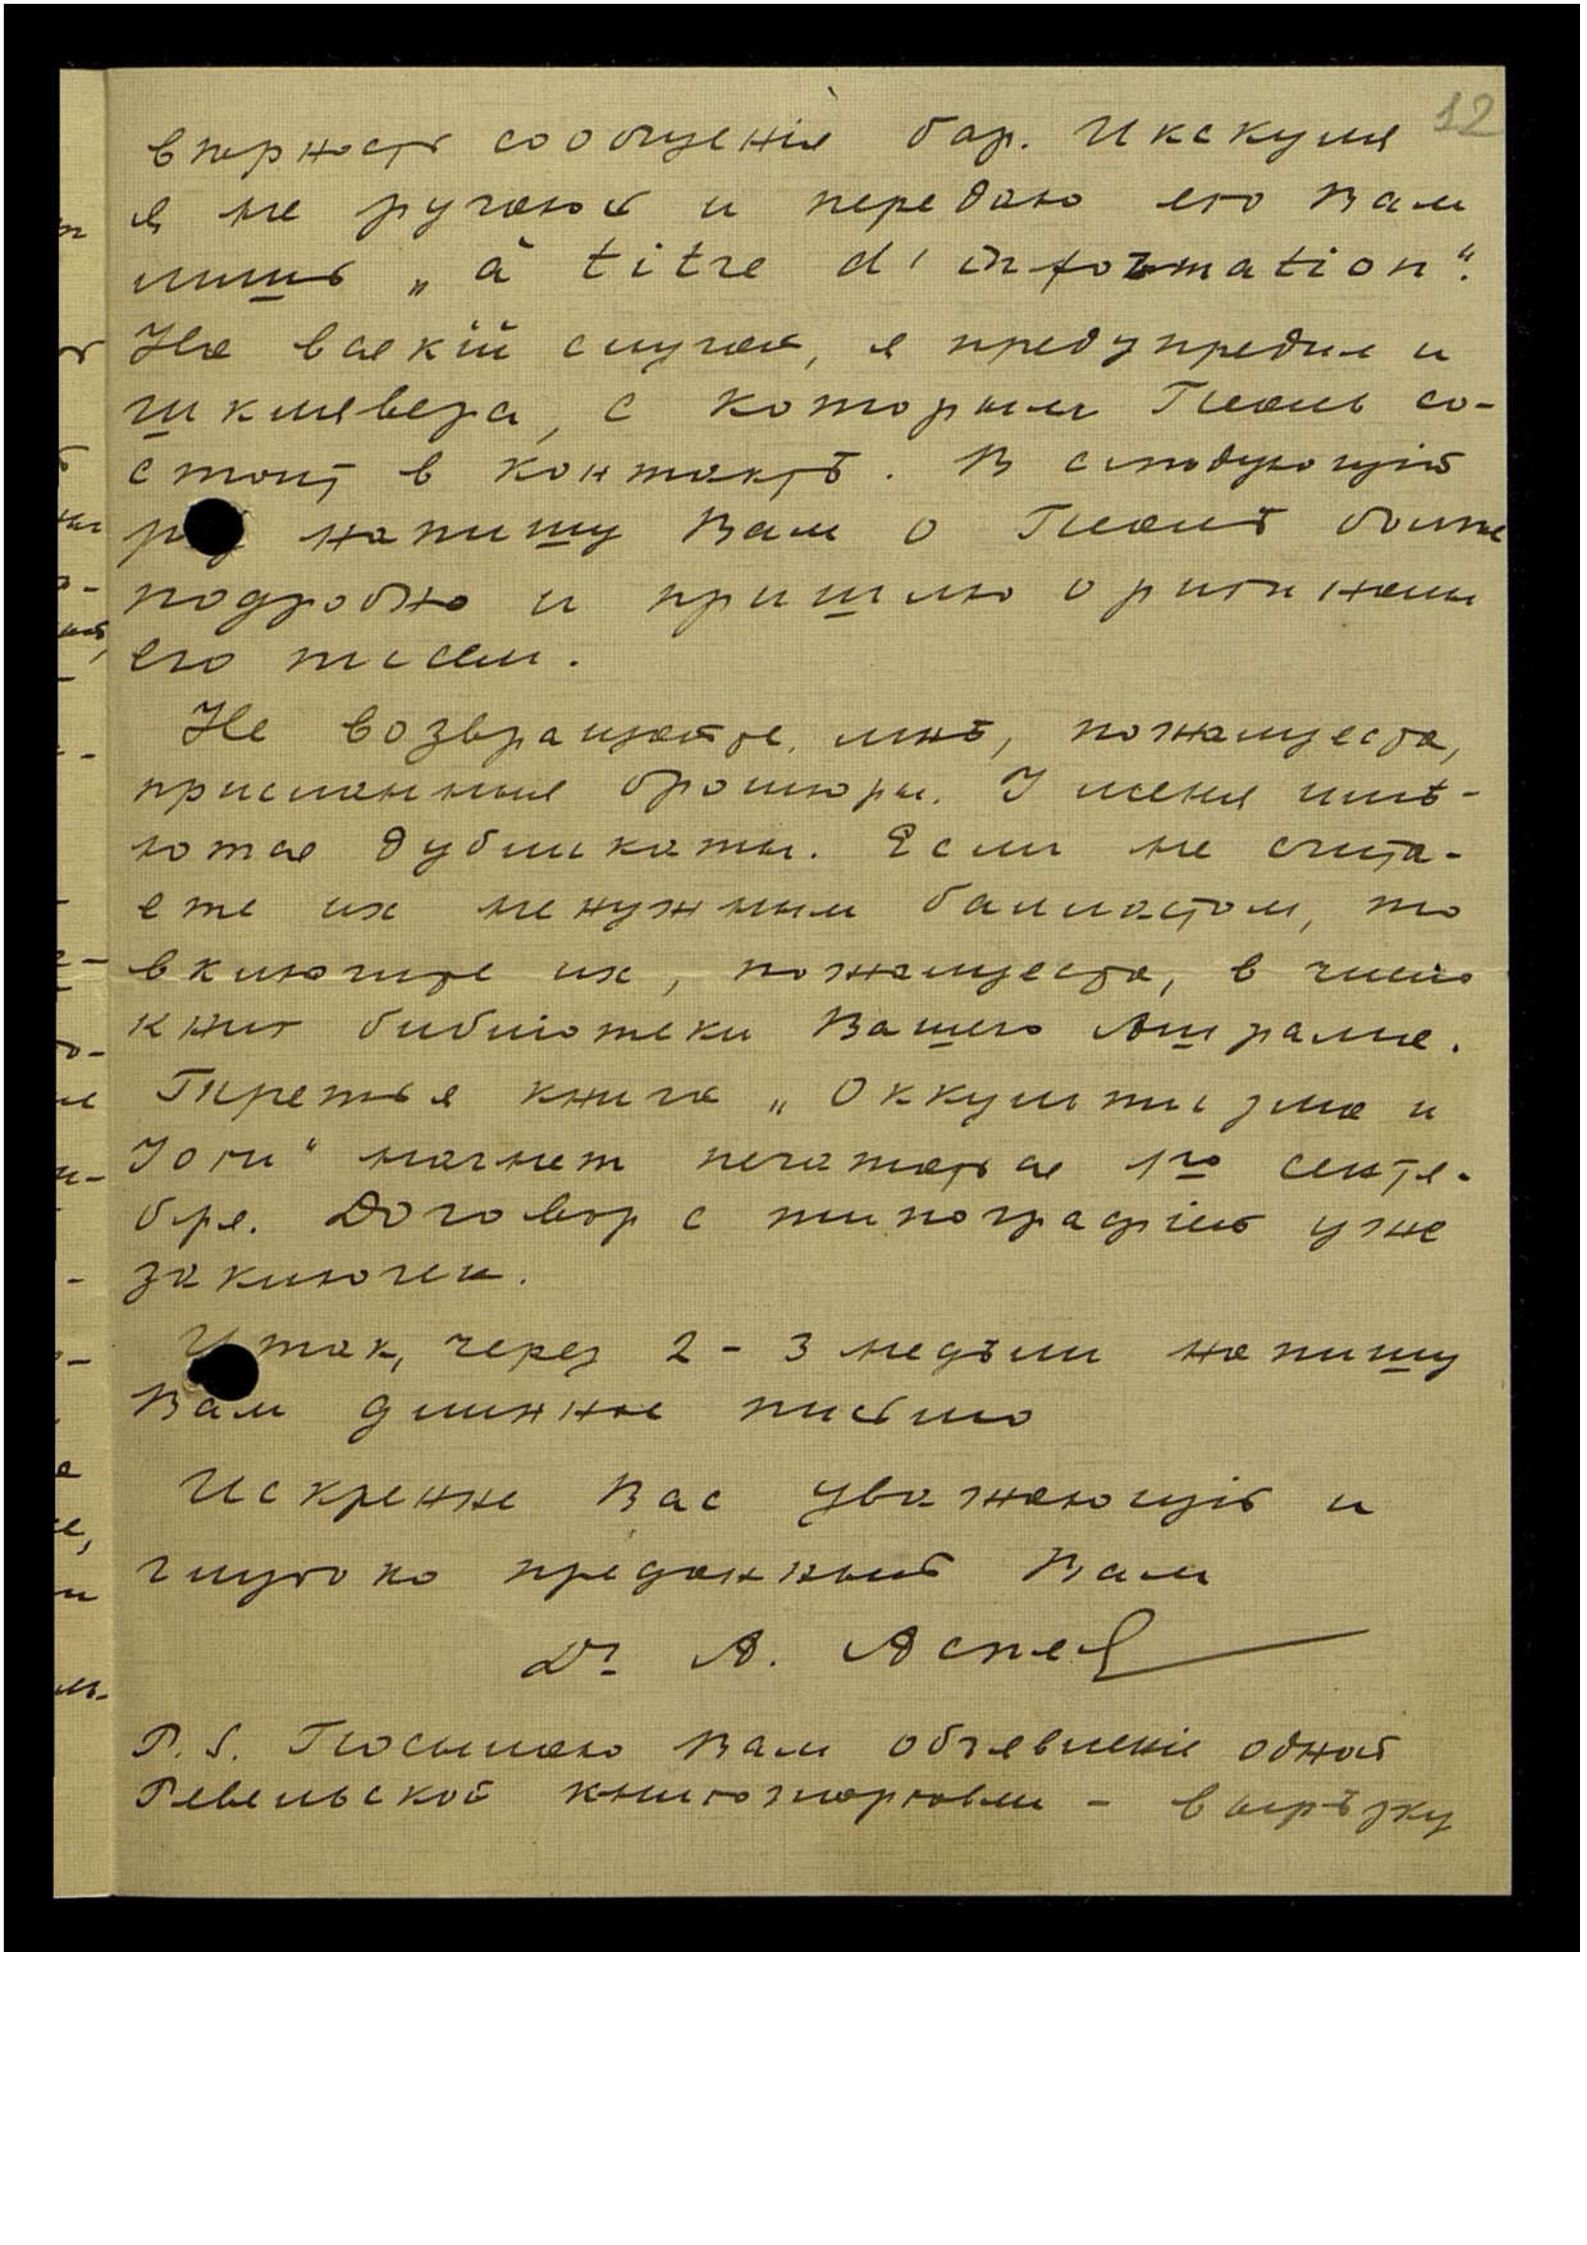 12
вѣрность сообщенія бар. Икскуля
я не ручаюсь и передаю его Вам
лишь „à titre d'information“.
На всякій случай, я предупредил и
Шклявера, с которым Гааль со-
стоит в контактѣ. В слѣдующій
раз напишу Вам о Гаалѣ болѣе
подробно и пришлю оригиналы
его писем.
Не возвращайте, мнѣ, пожалуйста,
присланныя брошюры. У меня имѣ-
ются дубликаты. Если не счита-
ете их ненужным балластом, то
включите их, пожалуйста, в число
книг библіотеки Вашего Ашрама.
Третья книга „Оккультизма и
Іоги“ начнет печататься 1го сентя-
бря. Договор с типографіей уже
заключен.
Итак, через 2 - 3 недѣли напишу
Вам длинное письмо
Искренне Вас уважающій и
глубоко преданный Вам
Dr А. Асеев
P.S. Посылаю Вам объявленіе одной
Ревельской книготорговли - вырѣзку